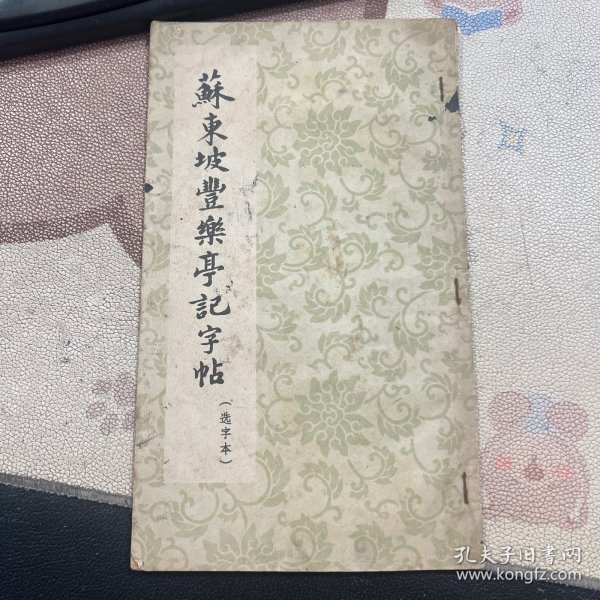 蘇東坡豐樂亭記字帖
（选字本）
孔夫子旧书网
www.kongfz.com